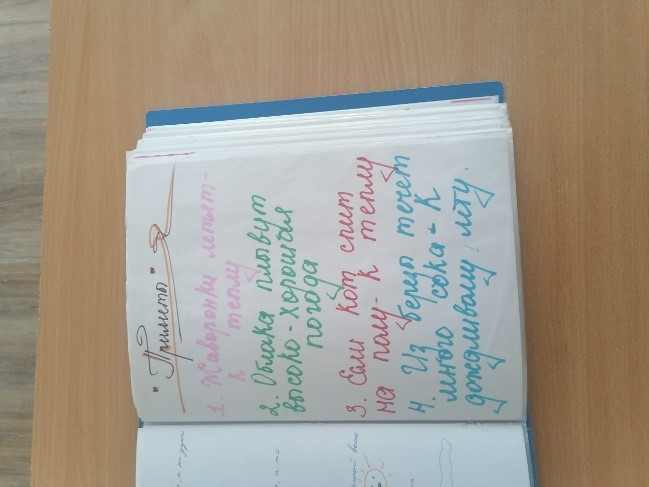 "Приметы"
1. Жаворонки летят-
к теплу
2. Облака плывут
высоко-хорошая
погода
3. Если кот спит
на полу-к теплу
4. Из берез течет
много сока-к
дождливому лету.